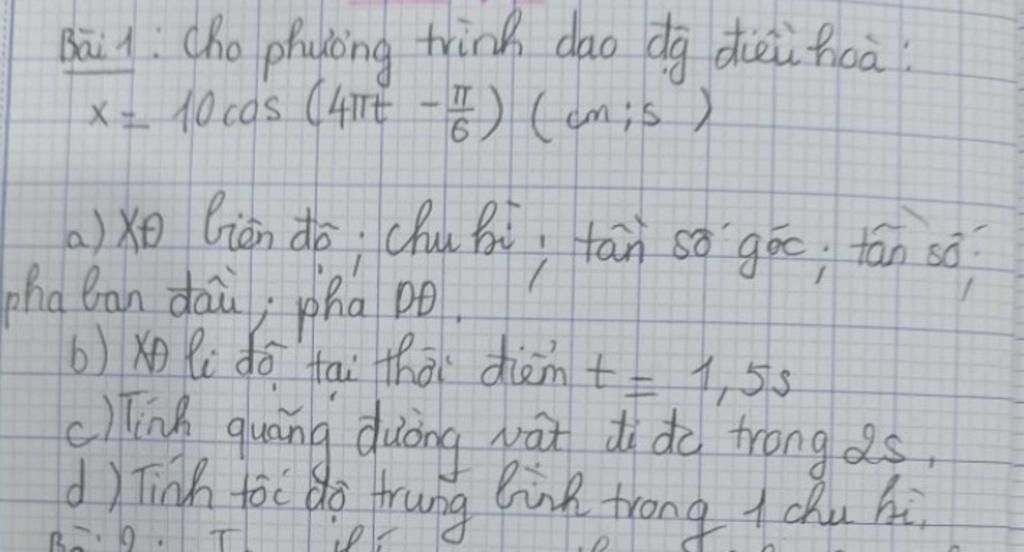 Bài 1: Cho phương trình dao đg điều hoà:
x = 10 cos (4πt - π/6) (cm; s)
a) XĐ biên độ; chu kì; tần số góc; tần số;
pha ban đầu; pha DĐ.
b) XĐ li độ tại thời điểm t = 1,5s
c) Tính quãng đường vật đi đc trong 2s.
d) Tính tốc độ trung bình trong 1 chu kì.